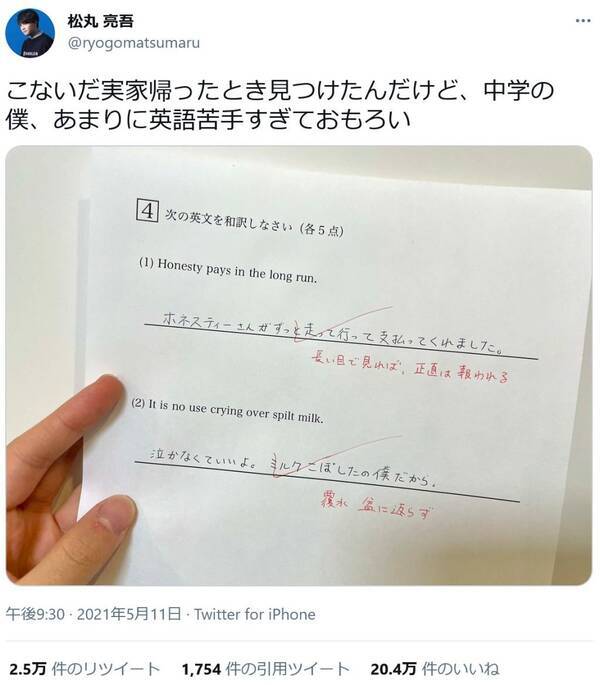 松丸 亮吾
@ryogomatsumaru
こないだ実家帰ったとき見つけたんだけど、中学の
僕、あまりに英語苦手すぎておもろい
4 次の英文を和訳しなさい（各５点）
(1) Honesty pays in the long run.
ホネスティーさんがずっと走って行って支払ってくれました。
長い目で見れば、正直は報われる
(2) It is no use crying over spilt milk.
泣かなくていいよ。ミルクこぼしたの僕だから。
覆水 盆に返らず
午後9:30 · 2021年5月11日 · Twitter for iPhone
2.5万 件のリツイート 1,754 件の引用ツイート 20.4万 件のいいね